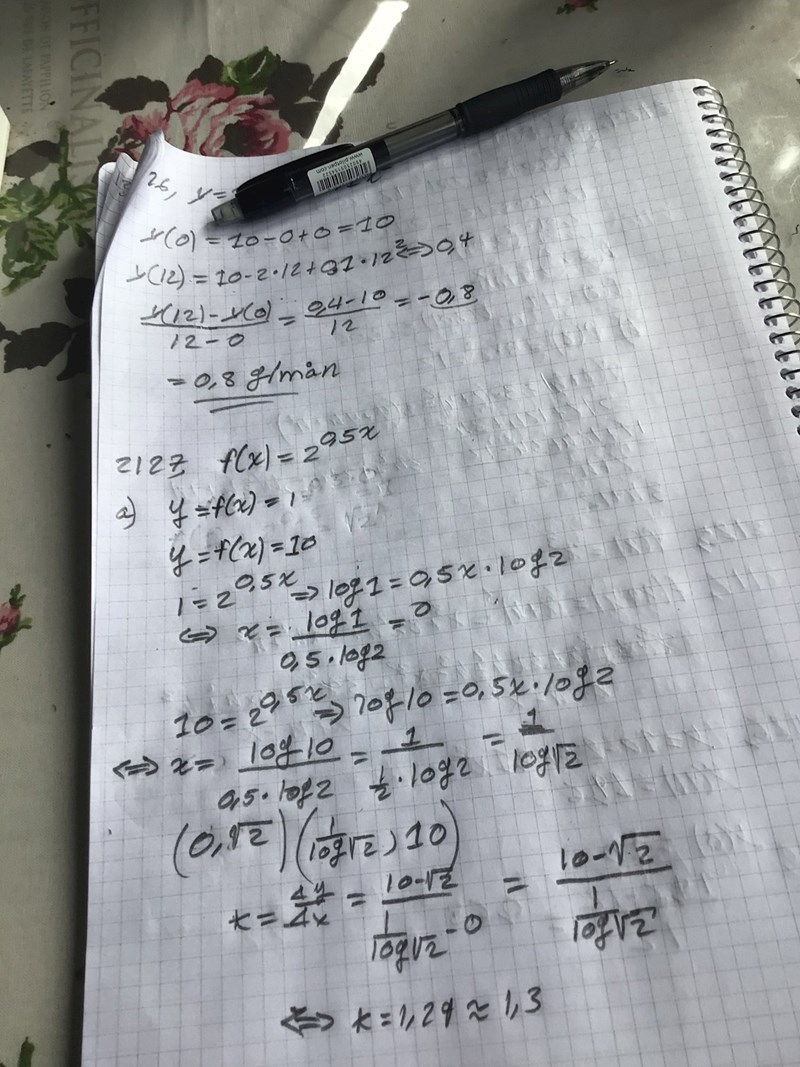 OFFICINAL
www.pilotpen.com
26, y=
y(0) = 10-0+0 = 10
y(12) = 10-2·12+0,1·12² <=> 0,4
y(12)-y(0) / 12-0 = 0,4-10 / 12 = -0,8
= 0,8 g/mån
2127 f(x) = 2^0,5x
a) y = f(x) = 1
y = f(x) = 10
1 = 2^0,5x => log1 = 0,5x·log2
<=> x = log1 / 0,5·log2 = 0
10 = 2^0,5x => log10 = 0,5x·log2
<=> x = log10 / 0,5·log2 = 1 / ½·log2 = 1 / log√2
(0,√2) (1/log√2, 10)
k = Δy/Δx = 10-√2 / 1/log√2 - 0 = 10-√2 / 1/log√2
<=> k = 1,29 ≈ 1,3